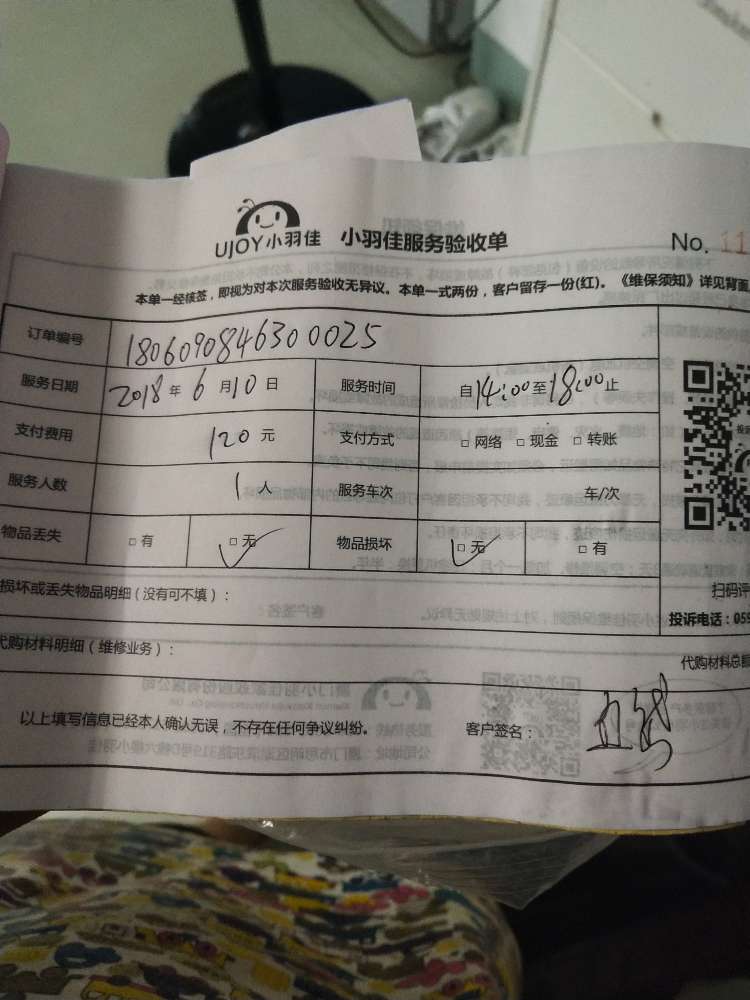 UJOY小羽佳 小羽佳服务验收单 No. 11
本单一经核签，即视为对本次服务验收无异议。本单一式两份，客户留存一份(红)。《维保须知》详见背面
订单编号 1806090846300025
服务日期 2018年6月10日 服务时间 自14:00至18:00止
支付费用 120元 支付方式 □ 网络 □ 现金 □ 转账
服务人数 1人 服务车次 车/次
物品丢失 □ 有 □ 无 物品损坏 □ 无 □ 有
损坏或丢失物品明细（没有可不填）：
扫码评
投诉电话：059
代购材料明细（维修业务）：
代购材料总额
以上填写信息已经本人确认无误，不存在任何争议纠纷。 客户签名：